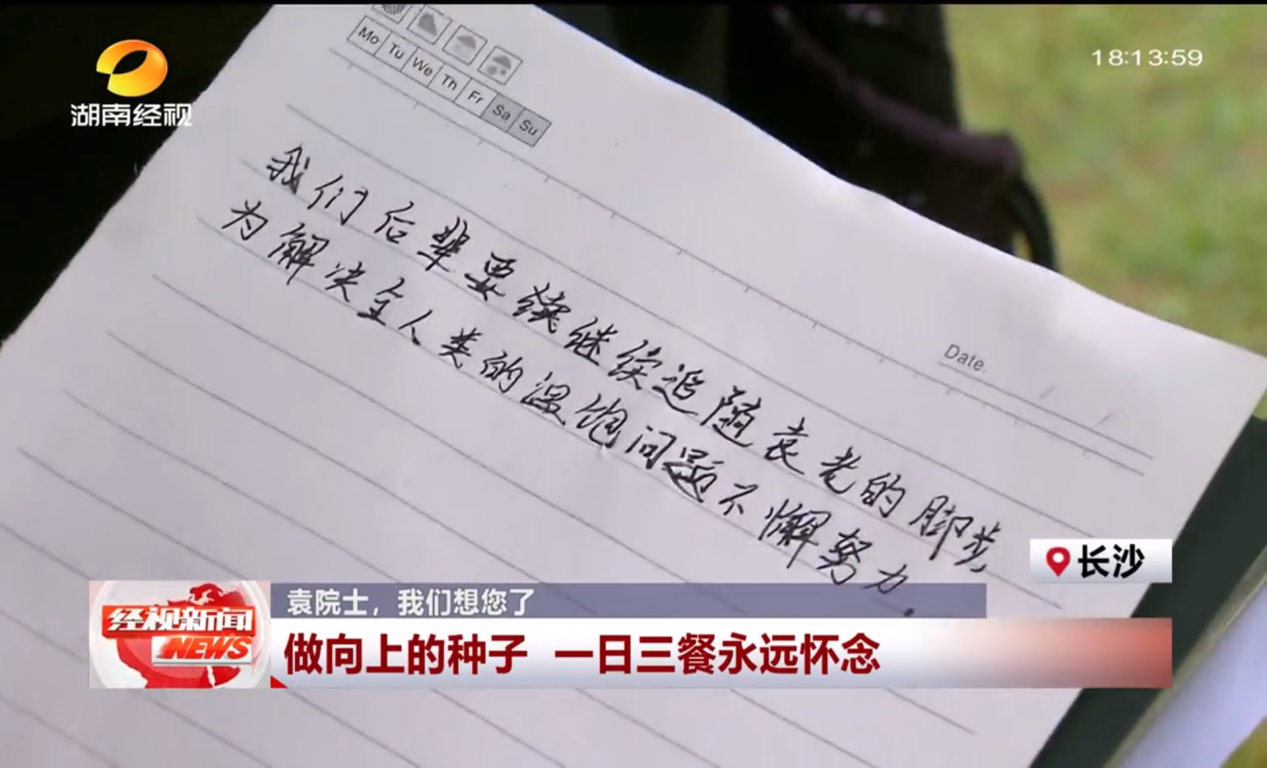 湖南经视
18:13:59
Mo Tu We Th Fr Sa Su
Date.
我们后辈要续继续追随袁老的脚步
为解决全人类的温饱问题不懈努力.
长沙
经视新闻
NEWS
袁院士，我们想您了
做向上的种子 一日三餐永远怀念